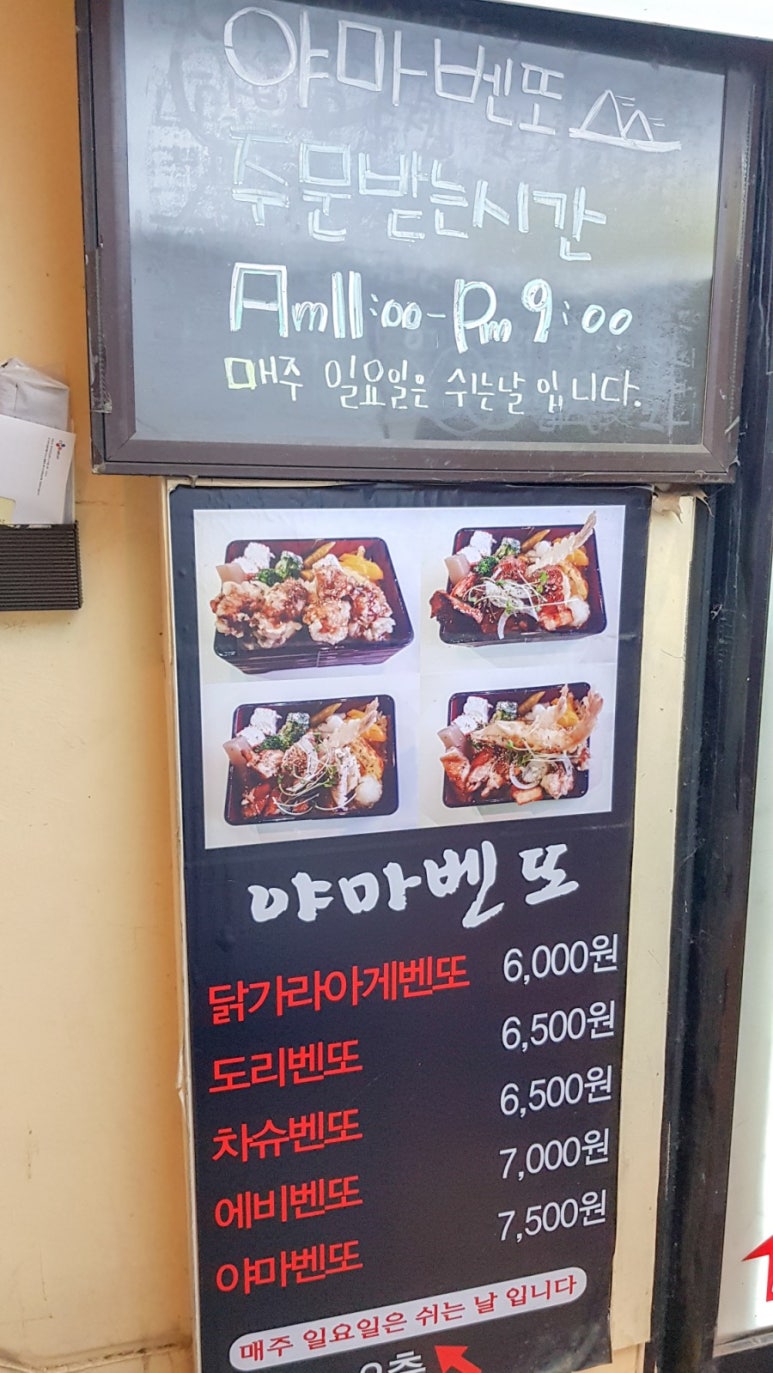 야마벤또
주문받는시간
Am11:00-Pm9:00
매주 일요일은 쉬는날 입니다.
야마벤또
닭가라아게벤또 6,000원
도리벤또 6,500원
차슈벤또 6,500원
에비벤또 7,000원
야마벤또 7,500원
매주 일요일은 쉬는 날 입니다